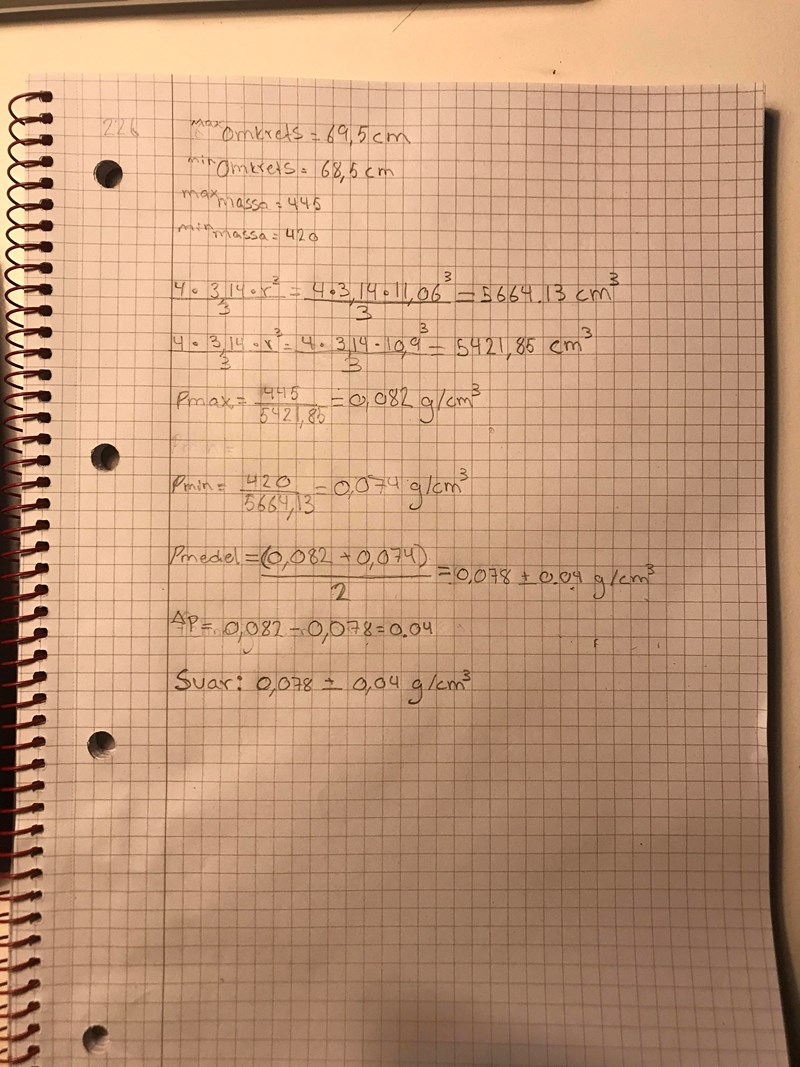 226
max Omkrets = 69,5 cm
min Omkrets = 68,5 cm
max massa = 445
min massa = 420
4 · 3,14 · r³ / 3 = 4 · 3,14 · 11,06³ / 3 = 5664.13 cm³
4 · 3,14 · r³ / 3 = 4 · 3,14 · 10,9³ / 3 = 5421,85 cm³
Pmax = 445 / 5421,85 = 0,082 g/cm³
Pmin = 420 / 5664,13 = 0,074 g/cm³
Pmedel = (0,082 + 0,074) / 2 = 0,078 ± 0.04 g/cm³
ΔP = 0,082 - 0,078 = 0.04
Svar: 0,078 ± 0,04 g/cm³